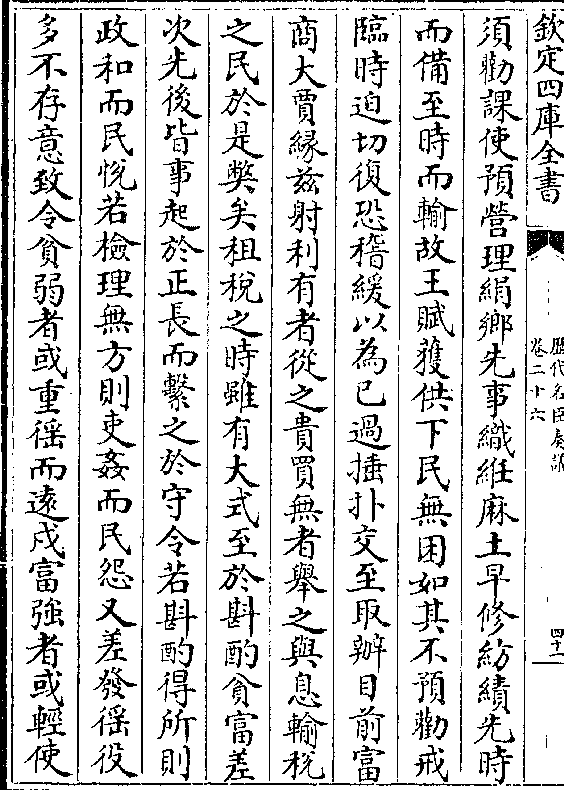 欽定四庫全書
歷代名臣奏議
卷二十六
四十一
須勸課使預營理絹鄉先事織絍麻土早修紡績先時
而備至時而輸故王賦獲供下民無困如其不預勸戒
臨時迫切復恐稽緩以為已過捶扑交至取辦目前富
商大賈縁兹射利有者從之貴買無者舉之與息輸稅
之民於是弊矣租稅之時雖有大式至於斟酌貧富差
次先後皆事起於正長而繫之於守令若斟酌得所則
政和而民悅若檢理無方則吏姦而民怨又差發徭役
多不存意致令貧弱者或重徭而遠戍富強者或輕使